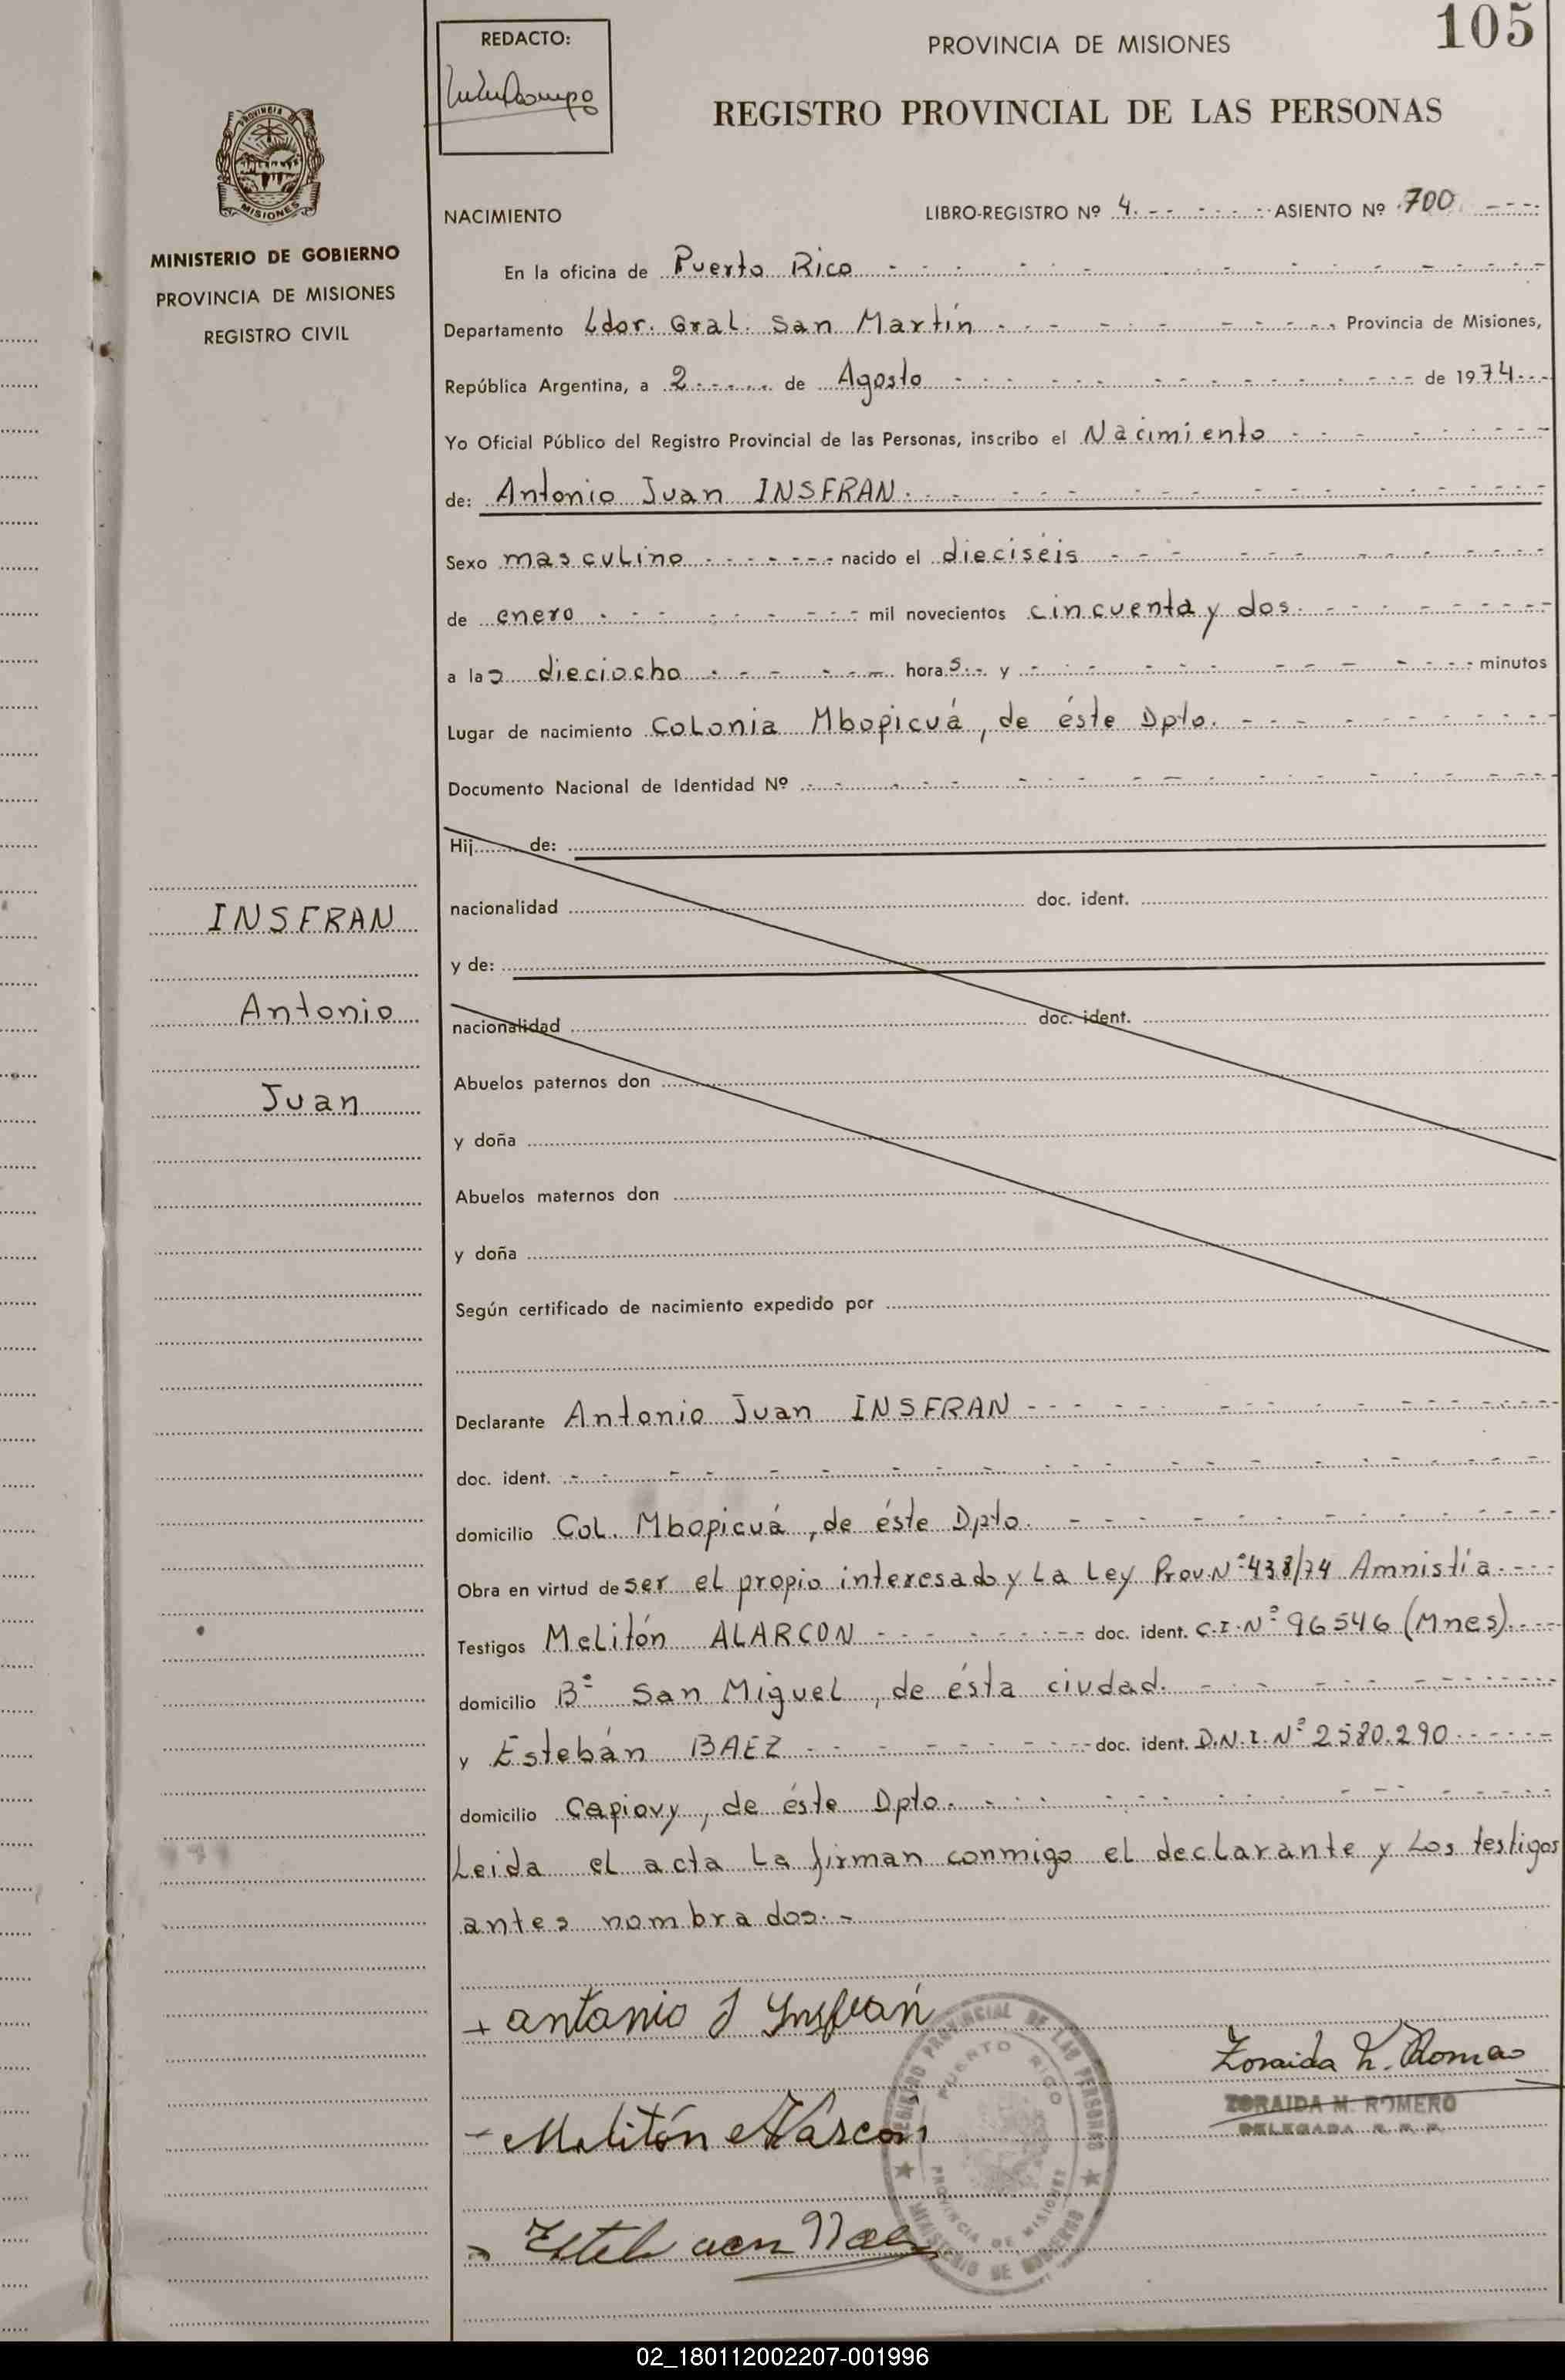 105
REDACTO:
PROVINCIA DE MISIONES
REGISTRO PROVINCIAL DE LAS PERSONAS
PROVINCIA DE
MISIONES
MINISTERIO DE GOBIERNO
PROVINCIA DE MISIONES
REGISTRO CIVIL
NACIMIENTO LIBRO-REGISTRO Nº 4. ASIENTO Nº 700
En la oficina de Puerto Rico
Departamento Ldor. Gral. San Martín Provincia de Misiones,
República Argentina, a 2 de Agosto de 1974
Yo Oficial Público del Registro Provincial de las Personas, inscribo el Nacimiento
de: Antonio Juan INSFRAN.
Sexo masculino nacido el dieciséis
de enero mil novecientos cincuenta y dos.
a las dieciocho horas. y minutos
Lugar de nacimiento Colonia Mbopicuá, de éste Dpto.
Documento Nacional de Identidad Nº
Hij de:
nacionalidad doc. ident.
y de:
nacionalidad doc. ident.
Abuelos paternos don
y doña
Abuelos maternos don
y doña
Según certificado de nacimiento expedido por
INSFRAN
Antonio
Juan
Declarante Antonio Juan INSFRAN
doc. ident.
domicilio Col. Mbopicuá, de éste Dpto.
Obra en virtud de ser el propio interesado y La Ley Prov. Nº 438/74 Amnistía.
Testigos Melitón ALARCON doc. ident. C.I. Nº 96546 (Mnes).
domicilio Bº San Miguel, de ésta ciudad.
y Estebán BAEZ doc. ident. D.N.I. Nº 2580.290
domicilio Capiovy, de éste Dpto.
Leida el acta La firman conmigo el declarante y Los testigos
antes nombrados.-
Antonio J Ynsfrán
Melitón Alarcón
Estevan Baez
Zoraida M. Romero
ZORAIDA M. ROMERO
DELEGADA R. P. P.
REGISTRO PROVINCIAL DE LAS PERSONAS
PUERTO RICO
PROVINCIA DE MISIONES
MINISTERIO DE GOBIERNO
02_180112002207-001996